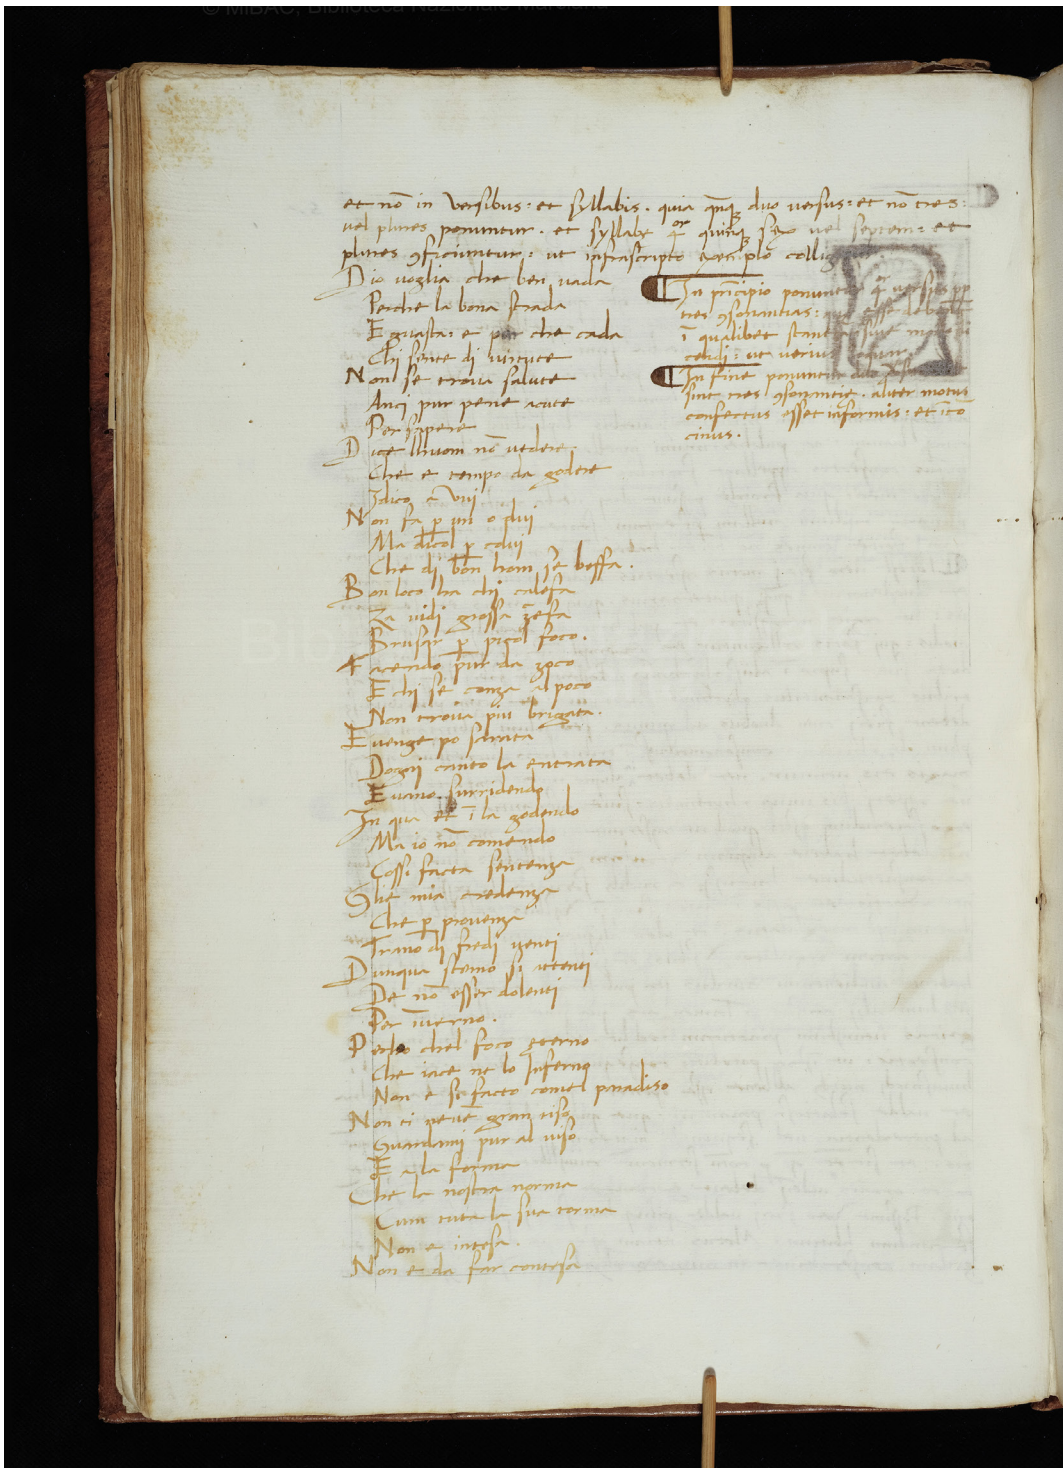 © MiBAC, Biblioteca Nazionale Marciana
et nō in versibus: et syllabis. quia qn̄q; duo versus: et nō tres:
vel plures ponuntur. et syllabe q̄tuor quinq; sex vel septem: et
plures ꝯficiuntur: ut infrascripto exemplo
Dio voglia che ben vada
Perche la bona strada
E guasta: e pur che cada
Chi sente di virtute
Non se trova salute
Anci pur pene acute
Per sapere
Dice lhuom nō vedere.
Che e tempo da godere
Idico a vui
Non fa p̱ un o dui
Ma dicol p̱ colui
Che di bon hom se beffa.
Bon loco ha chi calefa
Za vidi grossa zefa
Brusar p̱ picol foco.
Facendo pur da zoco
E chi se conza a poco
Non trova piu brigata.
E venze po sarata
Dogni canto la entrata
E vano surridendo
In qua et ī la godendo
Ma io nō comendo
Cossi facta sentenza
Che mia credenza
Che p̱ provenza
Trano di fredi venti
Dunqua stemo si attenti
De nō esser dolenti
Per īverno.
Perho chel foco eterno
Che iace ne lo Inferno
Non e si facto comel paradiso
Non ci gran riso
Guardami pur al viso
E a la forma
Che la nostra norma
Cum tuta la sua torma
Non e intesa.
Non e da far contesa
In principio ponuntur versus
tres ꝯsonantias: esse
ī qualibet
ut
In fine ponuntur duo
sint tres ꝯsonantie. aliter motus
confectus esset informis: et īco
cinus.